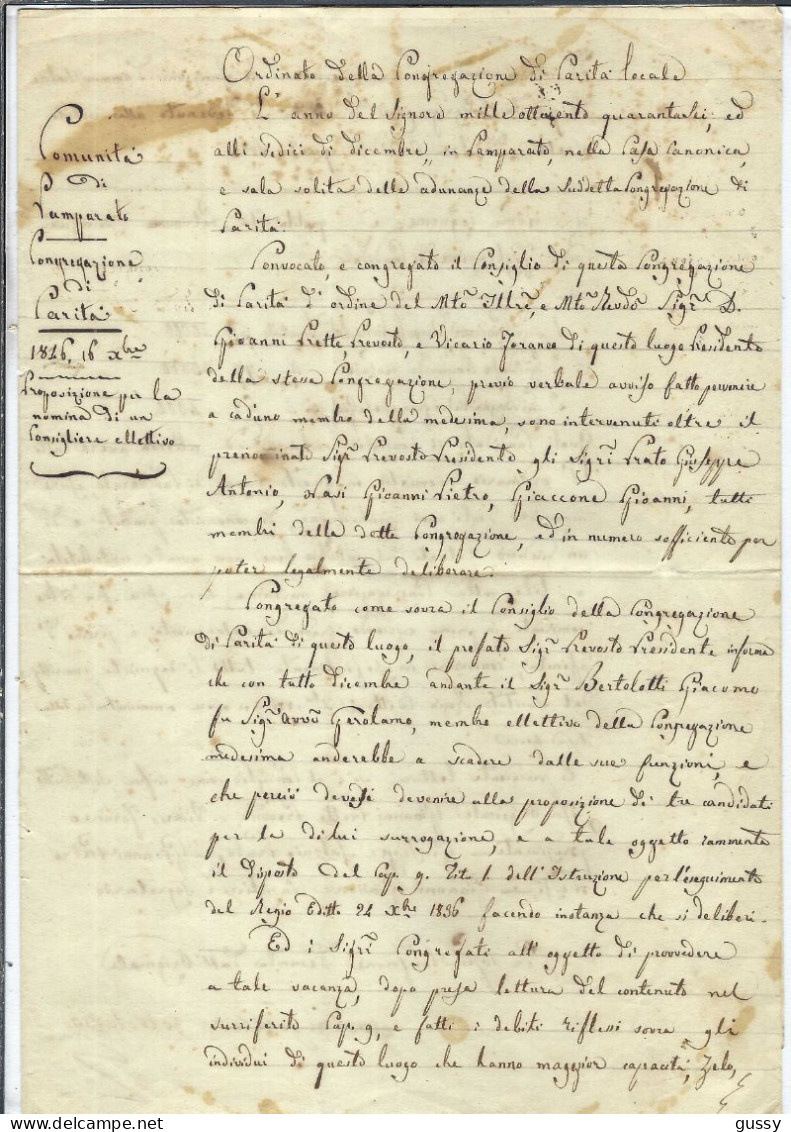 Comunità
di
Pamparato
Congregazione
di
Carità
1846, 16 Xbre
Proposizione per la
nomina di un
Consigliere ellettivo
Ordinato della Congregazione di Carità locale
L'anno del Signore mille ottocento quarantasei, ed
alli sedici di dicembre, in Pamparato, nella Casa Canonica,
e sala solita delle adunanze della suddetta Congregazione di
Carità.
Convocato, e congregato il Consiglio di questa Congregazione
di Carità d'ordine del Mto Illre, e Mto Revdo Sigr D.
Giovanni Prette, Prevosto, e Vicario Foraneo di questo luogo Presidente
della stessa Congregazione, previo verbale avviso fatto pervenire
a caduno membro della medesima, sono intervenuti oltre il
prenominato Sigr Prevosto Presidente gli Sigri Prato Giuseppe
Antonio, Nasi Giovanni Pietro, Giaccone Giovanni, tutti
membri della detta Congregazione, ed in numero sofficiente per
poter legalmente deliberare.
Congregato come sovra il Consiglio della Congregazione
di Carità di questo luogo, il prefato Sigr Prevosto Presidente informa
che con tutto dicembre andante il Sigr Bertolotti Giacomo
fu Sigr Avvo Gerolamo, membro ellettivo della Congregazione
medesima anderebbe a scadere dalle sue funzioni, e
che perciò devesi devenire alla proposizione di tre candidati
per la dilui surrogazione, e a tale oggetto rammenta
il disposto del Cap. 9. Tit. 1. dell'Istruzione per l'eseguimento
del Regio Editto 24 Xbre 1836 facendo instanza che si deliberi.
Ed i Sigri Congregati all'oggetto di provvedere
a tale vacanza, dopo presa lettura del contenuto nel
surriferito Cap. 9, e fatti i debiti riflessi sovra gli
individui di questo luogo che hanno maggior capacità, zelo,
gussy